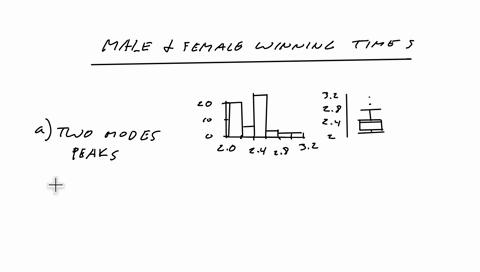 MALE & FEMALE WINNING TIMES
a) TWO MODES
PEAKS
20
10
0
2.0 2.4 2.8 3.2
3.2
2.8
2.4
2